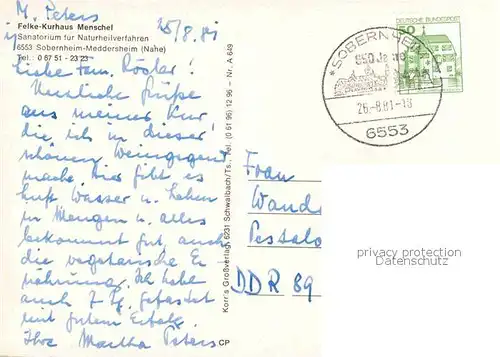 M. Peters
25/8.81
Felke-Kurhaus Menschel
Sanatorium für Naturheilverfahren
6553 Sobernheim-Meddersheim (Nahe)
Tel.: 0 67 51 - 23 23
Liebe Fam. Rösler!
Herzliche Grüße
aus meiner Kur
die ich in dieser
schönen Weingegend
mache. Hier gibt es
Luft Wasser u. Lehm
in Mengen u. alles
bekommt gut, auch
die vegetarische Er-
nährung. Ich habe
auch 7 Tg. gefastet
mit gutem Erfolg.
Ihre Martha Peters
CP
Korr's Großverlag, 6231 Schwalbach/Ts., Tel. (0 61 96) 12 96 – Nr. A 649
Frau
Wand
Pestalo
DDR 89
* SOBERNHEIM
650 Jahre
26.-8.81-18
6553
DEUTSCHE BUNDESPOST
50
privacy protection
Datenschutz